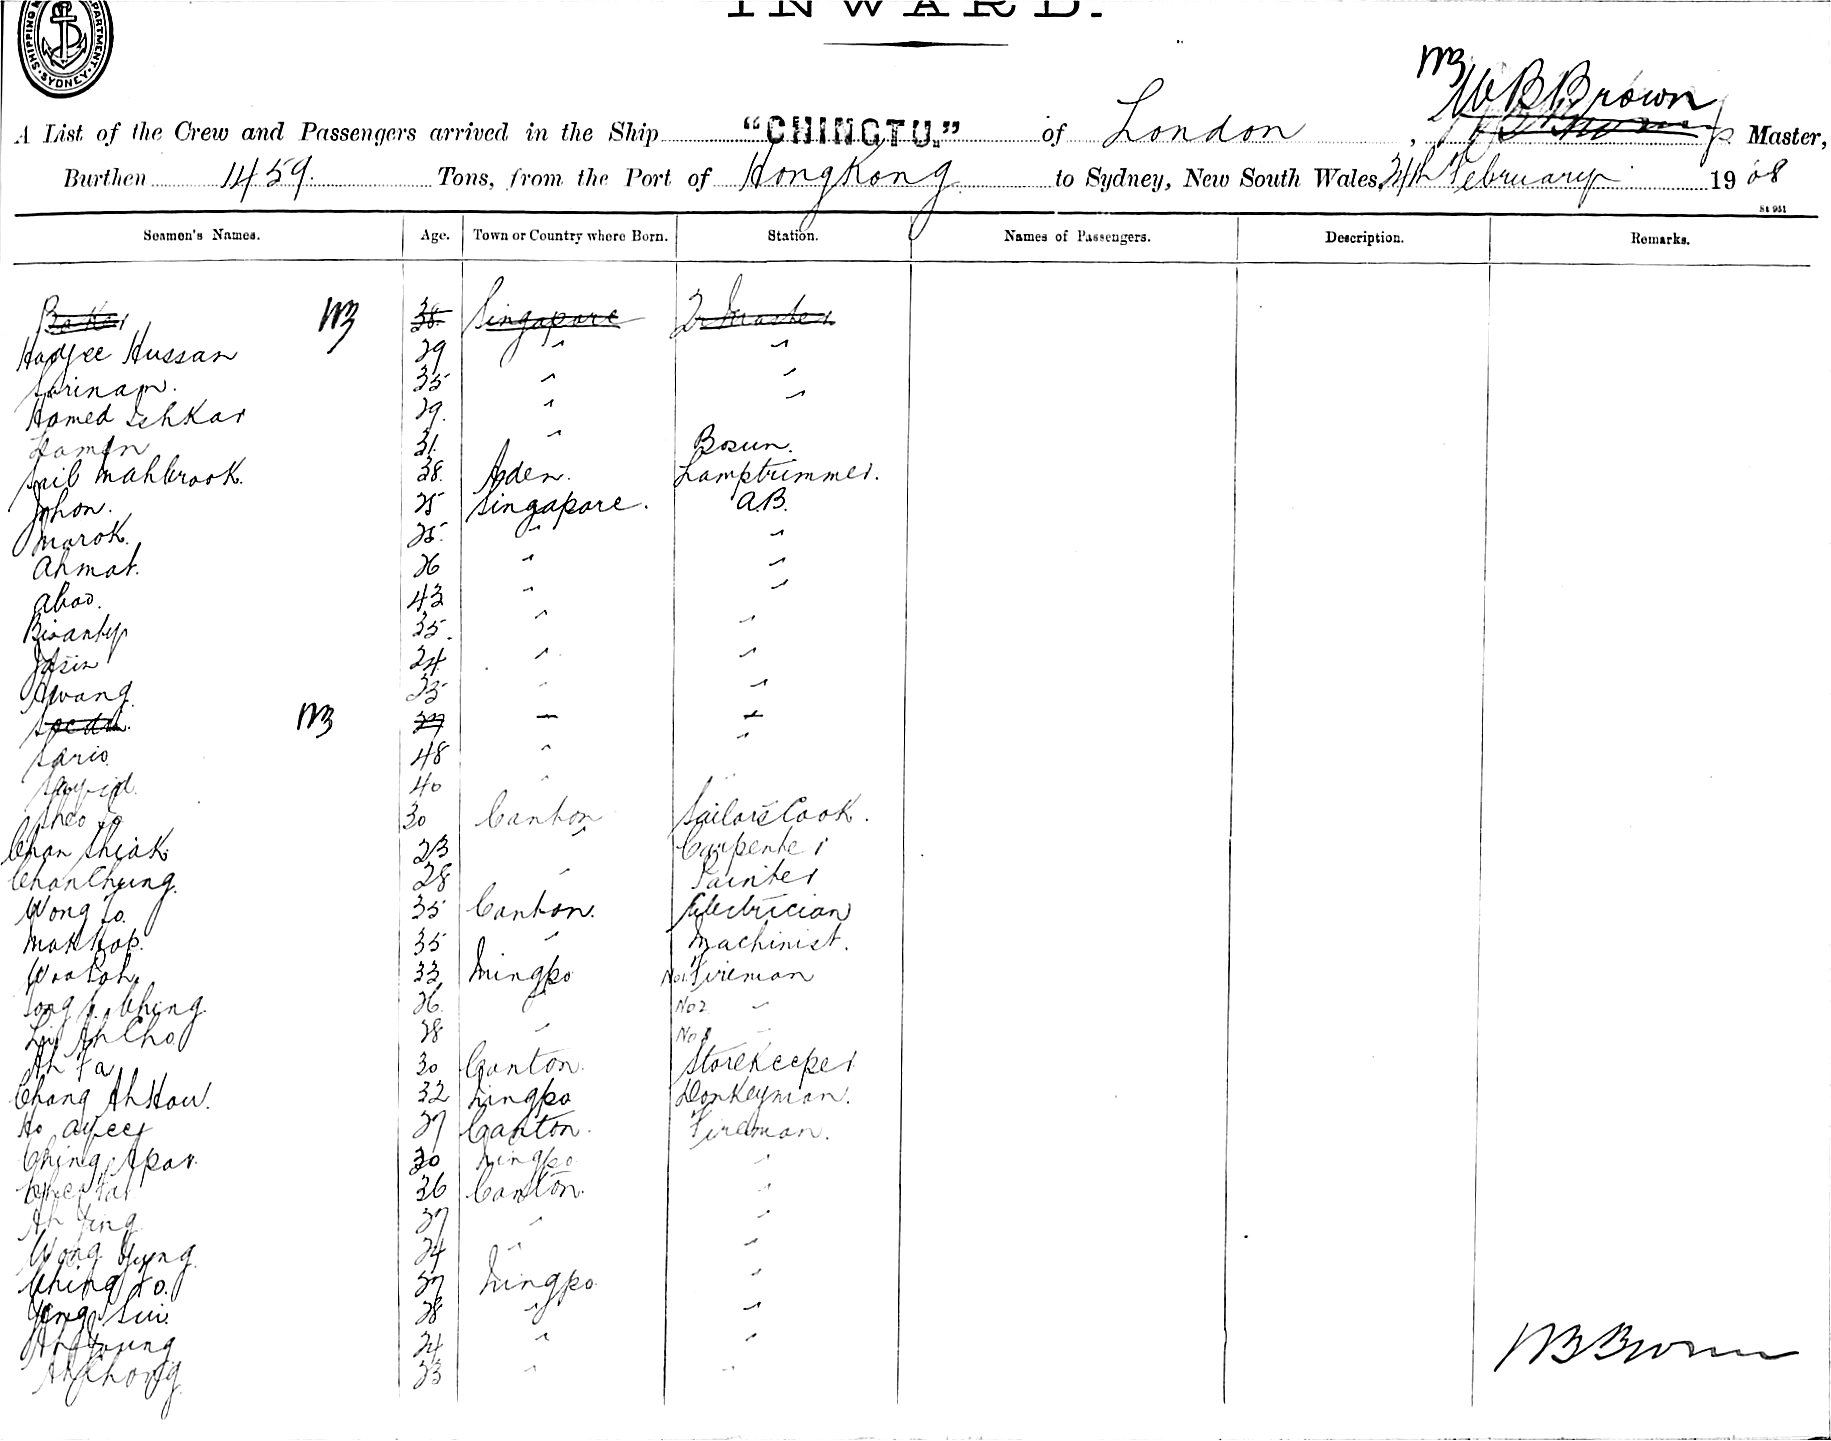 INWARD.
SHIPPING DEPARTMENT SYDNEY
WB
W B Brown
A List of the Crew and Passengers arrived in the Ship "CHINGTU." of London, Master,
Burthen 1459. Tons, from the Port of HongKong to Sydney, New South Wales, 24th February 1908
St 951
Seamen's Names. Age. Town or Country where Born. Station. Names of Passengers. Description. Remarks.
Baker WB 38 Singapore Qr Master
Hadjee Hussan 29 " "
Sarinam. 35 " "
Hamed Schkar 29. " "
31. " Bosun.
Mahbrook. 38. Aden. Lamptrimmer.
Johon. 25 Singapore. A.B.
Marok. 25. " "
Ahmat. 26 " "
Aboo. 43 " "
35. " "
Jasin 24 " "
Awang 25 " "
WB 27 " "
Sario 48 " "
40 "
30 Canton Sailors Cook.
Chan Shiak 23 " Carpenter
Chan Chung. 28 " Painter
Wong So. 35 Canton. Electrician
Mak Kop. 35 " Machinist.
33 Ningpo No1. Fireman
Ching 26. " No2 "
Ah Cho 28 " No3 "
Ah Fa 30 Canton. Storekeeper
Chang Ah How. 32 Ningpo Donkeyman.
Ho 27 Canton. Fireman.
Ching Apow. 30 Ningpo "
36 Canton. "
Ah Jing 27 " "
Wong Yung 24 " "
Ching So. 27 Ningpo "
28 " "
Ah 24 " "
Ah Chong 23 " "
WB Brown